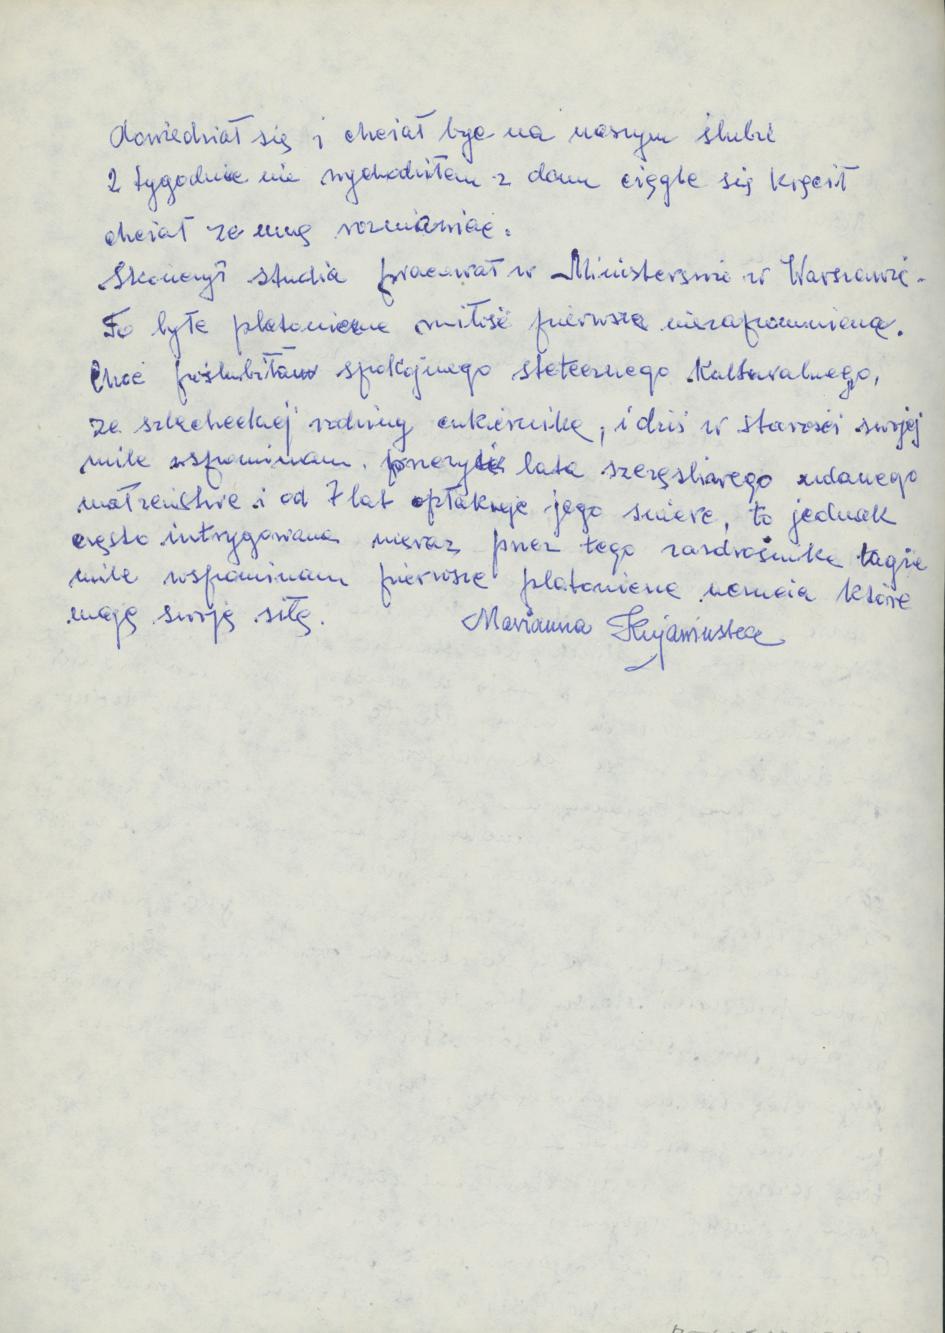 dowiedział się i chciał być na naszym ślubie
2 tygodnie nie wychodziłam z domu ciągle się kręcił
chciał ze mną rozmawiać.
Skończył studia pracował w Ministerswie w Warszawie.
To była platoniczna miłość pierwsza niezapomniana.
Choć poślubiłam spokojnego statecznego kulturalnego,
ze szlacheckiej rodziny cukiernika, i dziś w starości swojej
mile wspominam. przeżyte lata szczęśliwego udanego
małżeństwa i od 7 lat opłakuje jego śmierć, to jednak
często intrygowana nieraz przez tego zazdrośnika
mile wspominam pierwsze platoniczne uczucia które
mają swoją siłę. Marianna Kujawińska